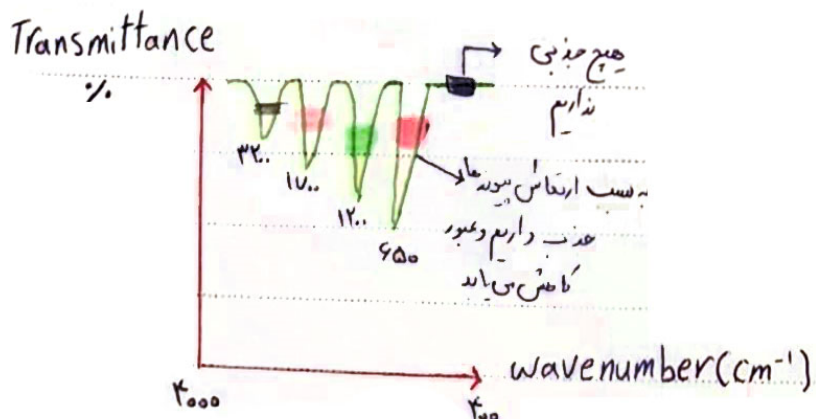 Transmittance
%
هیچ جذبی
نداریم
۳۲۰۰
۱۷۰۰
۱۲۰۰
۶۵۰
به سبب ارتعاش پیوندها
جذب داریم و عبور
کاهش می‌یابد
wavenumber(cm⁻¹)
۴۰۰۰
۴۰۰